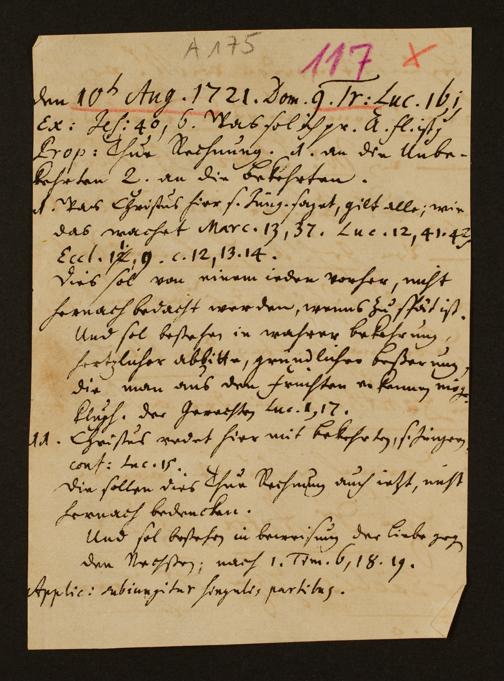 A 175
117 x
den 10t Aug. 1721. Dom. 9. Tr: Luc. 16, j
Ex: Jes: 40, 6. Was sol ich pr. A. fl. ist
Prop: Thue Rechnung. 1. an die Unbe-
kehrten 2. an die bekehrten.
1. Was Christus hier s. Jüng. saget, gilt alle; wie
das wachet Marc. 13, 37. Luc. 12, 41. 42
Eccl. 9. c. 12, 13. 14.
Dies sol von einem ieden vorher, nicht
hernach bedacht werden, wenns zu spät ist.
Und sol bestehen in wahrer bekehrung,
hertzlicher abbitte, gründlicher besserung,
die man aus den früchten erkennen mög.
klugh. der Gerechten Luc. 1, 17.
11. Christus redet hier mit bekehrten, s. Jüngern,
conf: Luc. 15.
Die sollen dies Thue Rechnung auch ietzt, nicht
hernach bedencken.
Und sol bestehen in beweisung der liebe gegen
den Nechsten; nach 1. Tim. 6, 18. 19.
Applic: subiungitur singulis partibus.